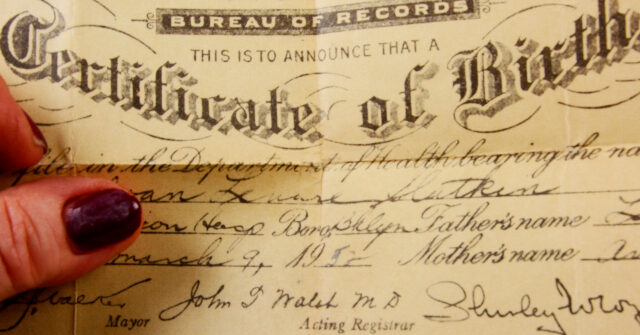 BUREAU OF RECORDS
THIS IS TO ANNOUNCE THAT A
Certificate of Birth
file in the Department of Health bearing the na
Slatkin
Hosp Boro Bklyn Father's name
March 9, 195 Mother's name
John T Walsh M D Shirley
Mayor Acting Registrar